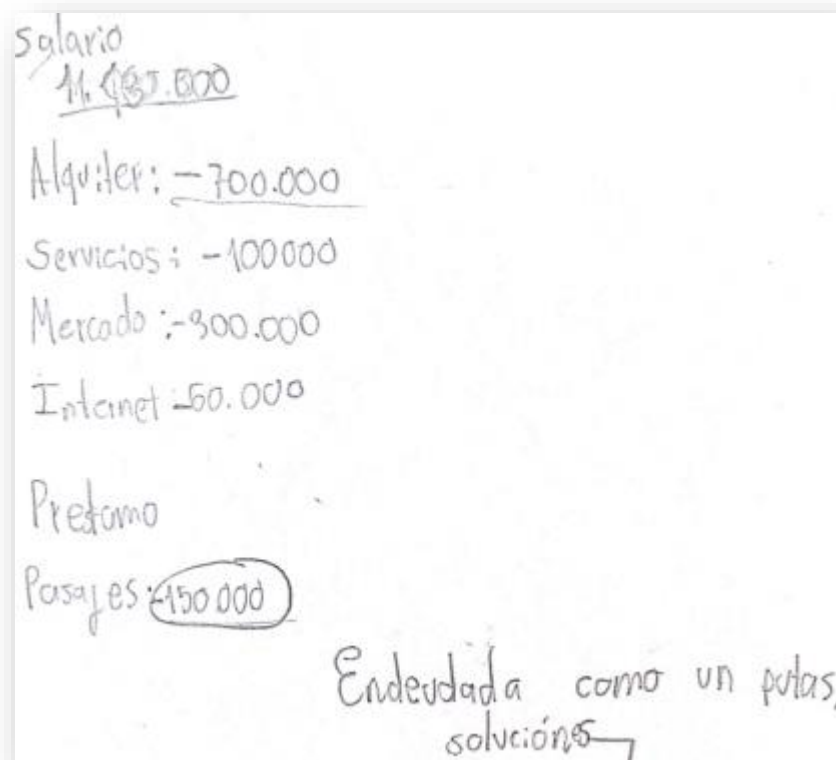 Salario
Alquiler: -700.000
Servicios: -100000
Mercado: -300.000
Internet -60.000
Prestamo
Pasajes: -150.000
Endeudada como un putas,
soluciónes